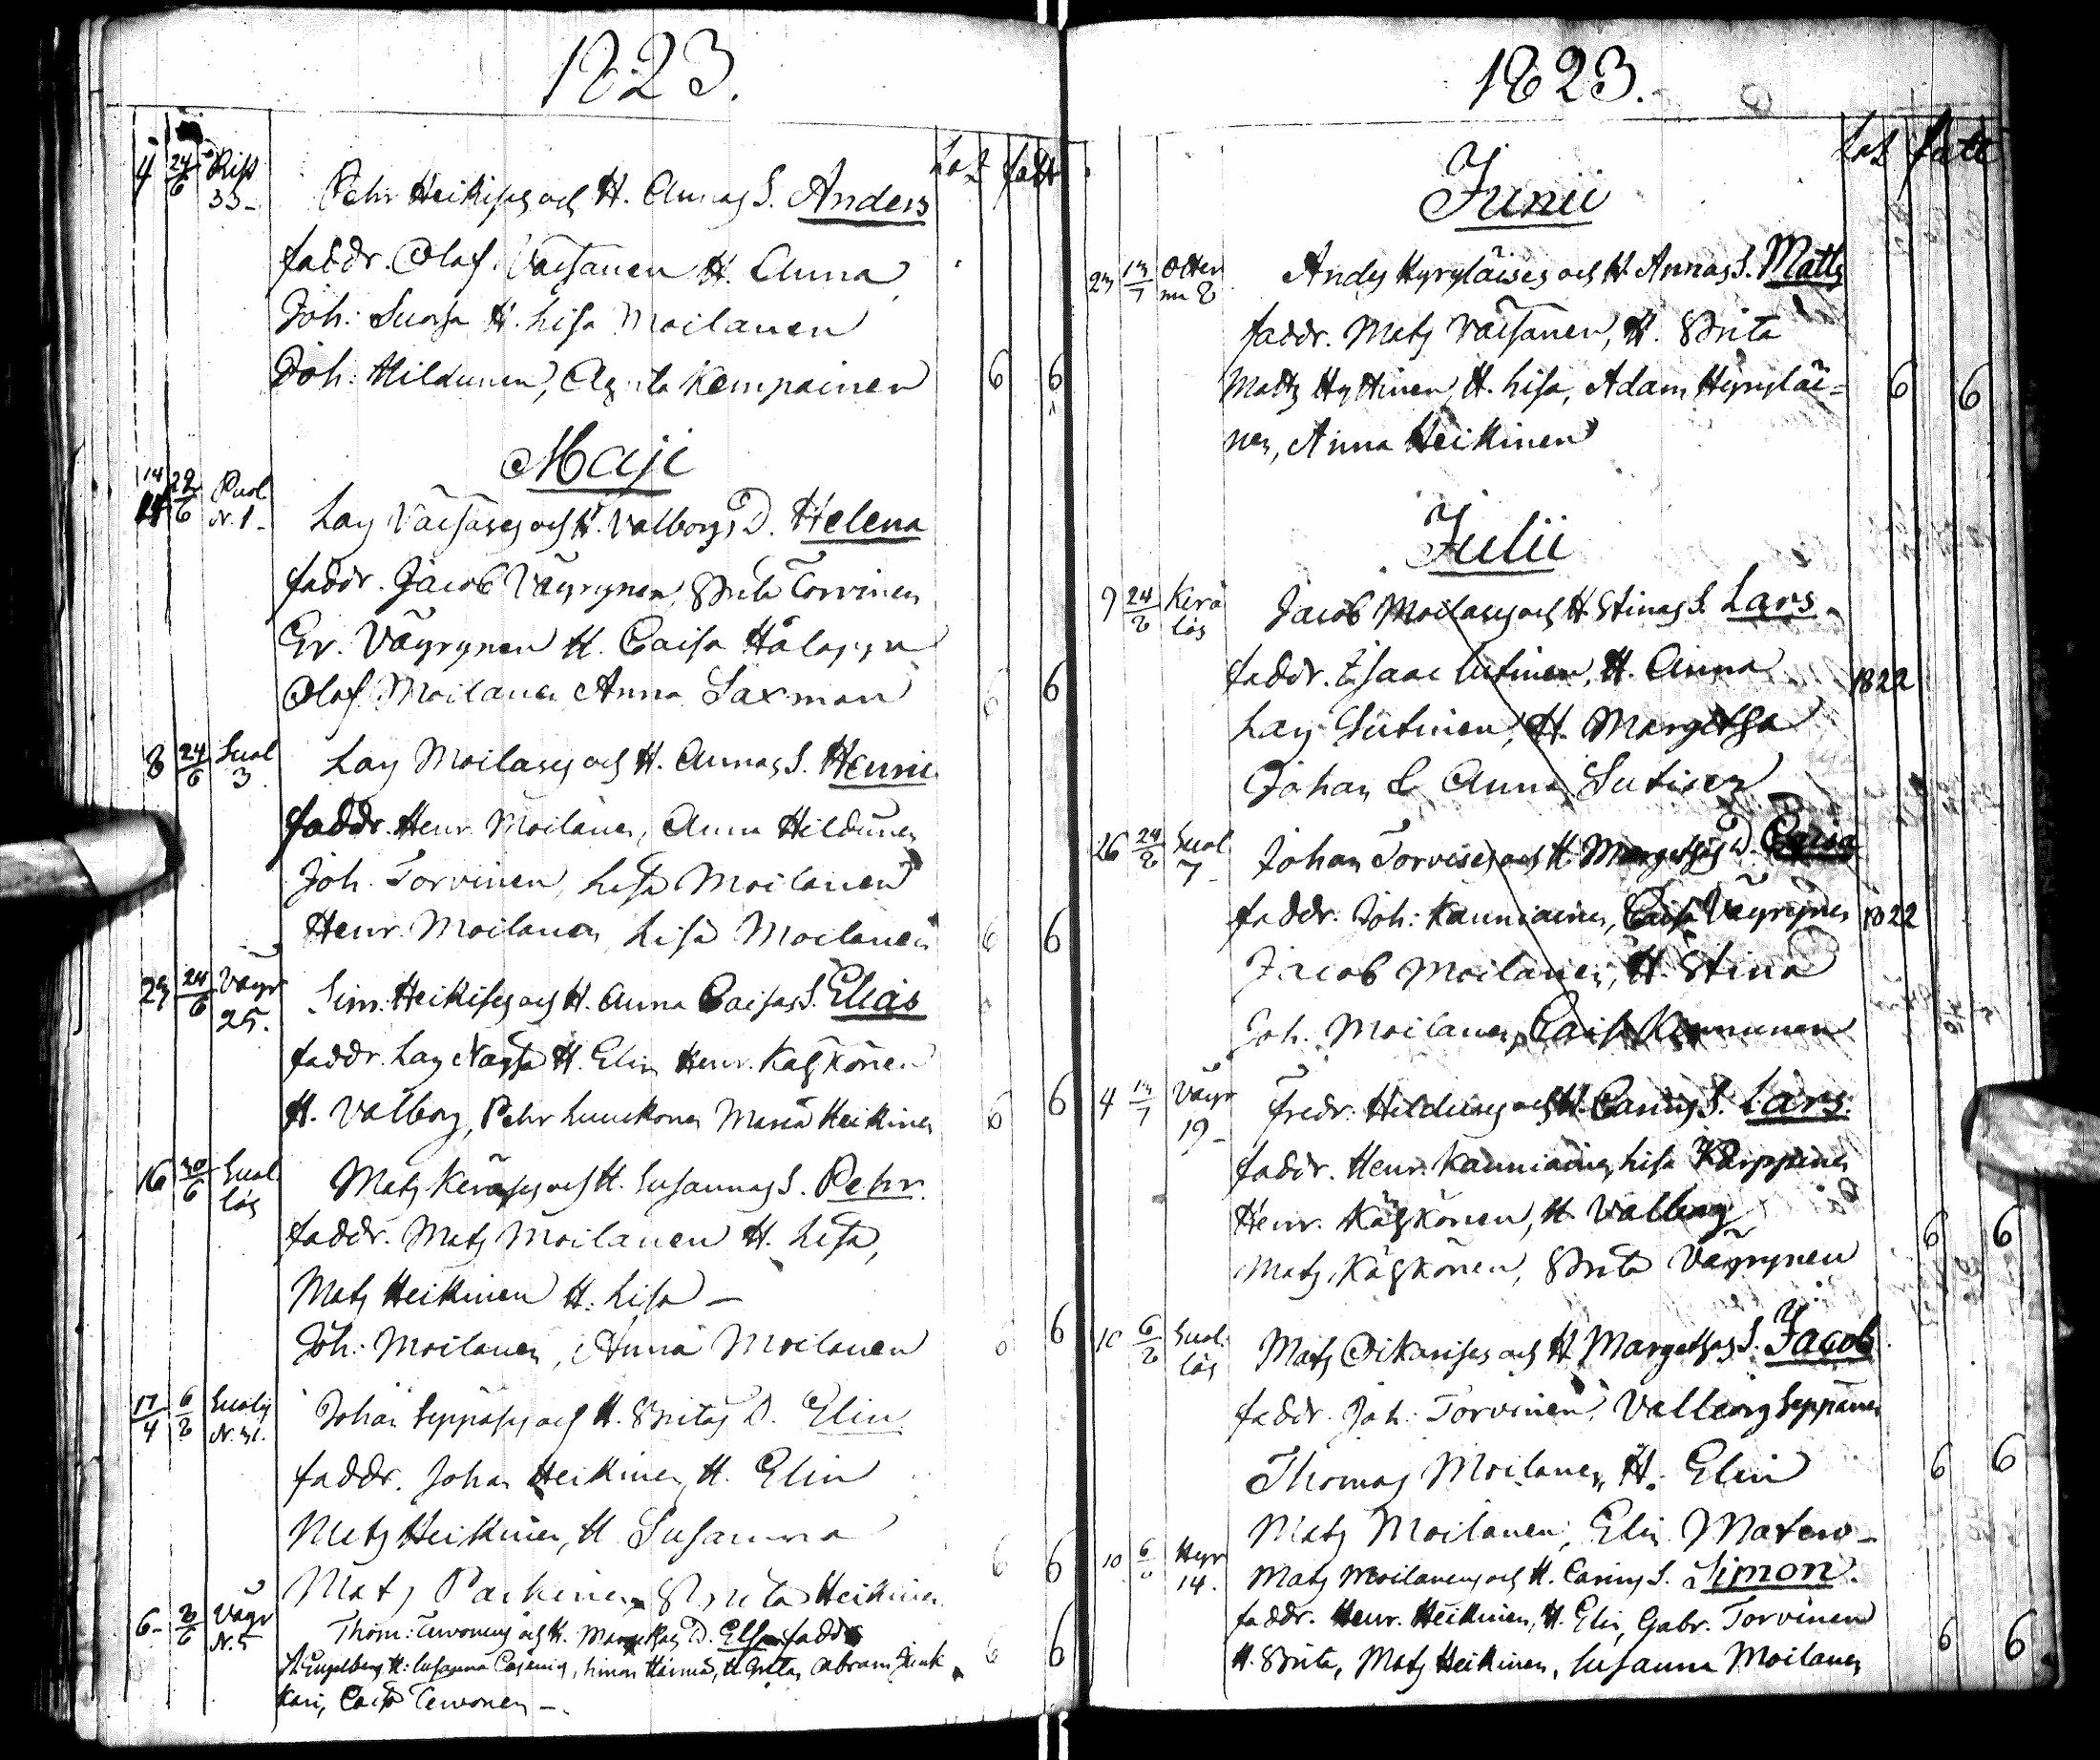 1823.
Lat fatt
4 24/6 Rist 33- Pehr Heikises och H. Annas S. Anders
faddr. Olof Väisänen H. Anna
Joh: Suorsa H. Lisa Moilanen
Joh: Hildunen, Agnita Kempainen 6 6
Maji
14 22/6 Puol N.1- Lars Väisäses och H. Valborgs D. Helena
faddr. Jacob Väyrynen, Brita Torvinen
Er. Väyrynen H. Caisa Hälappa
Olof Moilanen Anna Saxman 6 6
8 24/6 Suol 3 Lars Moilases och H. Annas S. Henric
faddr. Henr. Moilanen, Anna Hildunen
Joh. Torvinen, Lisa Moilanen
Henr. Moilanen Lisa Moilanen 6 6
27 24/6 Väyr 25. Sim: Heikises och H. Anna Caisas S. Elias
faddr. Lars H. Elin Henr. Käykönen
H. Valborg, Pehr Luuckonen Maria Heikinen 6 6
16 30/6 Suol lös Mats Keräses och H. Susannas S. Pehr.
faddr. Mats Moilanen H. Lisa,
Mats Heikinen H. Lisa -
Joh: Moilanen, Anna Moilanen 6 6
17/4 6/8 Suolij N. 31. Johan Seppäses och H. Britas D. Elin
faddr. Johan Heikinen, H. Elin
Mats Heikinen, H Susanna
Mats Parkinen Brita Heikinen 6 6
6- 8/6 Väyr N. 5 Thom: Tervonens och H. Margethas D. Elsa faddr
Engelberg H: Susanna Cajenia, Simon Härmä, H Greta, Abram Junk
kari, Caisa Tervonen -. 6 6
1823.
Lat fatt
Junii
23 13/7 Otter mä 8 Anders Hyryläises och H. Annas S. Matts
faddr. Mats Väisänen, H. Brita
Matts Hyttinen, H. Lisa, Adam Hyryläi= 6 6
nen, Anna Heikinen
Julii
9 24/8 Kerä lös Jacob Moilases och H. Stinas S. Lars
faddr. Isaac Sutinen, H. Anna 1822
Lars Sutinen, H. Margetha
Johan & Anna Sutinen
26 24/8 Suol 7- Johan Torvises och H. Margethas D. Caisa
faddr. Joh: Kauniainen, Caisa Väyrynen 1822
Jacob Moilanen, H. Stina
Joh. Moilanen, Caisa Kemunen
4 13/7 Väyr 19- Fredr. Hildunes och H. Carins S. Lars.
faddr. Henr. Kauniainen, Lisa Karppinen
Henr. Käykönen, H. Valborg 6 6
Mats Käyköinen, Brita Väyrynen
10 6/8 Suol. lös Mats Oikarises och H. Margethas S. Jacob
faddr. Joh: Torvinen, Valborg Seppänen
Thomas Moilanen, H. Elin 6 6
Mats Moilanen, Elin Matero -
10 6/8 Hyr 14. Mats Moilanens och H. Carins S. Simon.
faddr. Henr. Heikinen, H. Elin, Gabr. Torvinen
H. Brita, Mats Heikinen, Susanna Moilanen 6 6